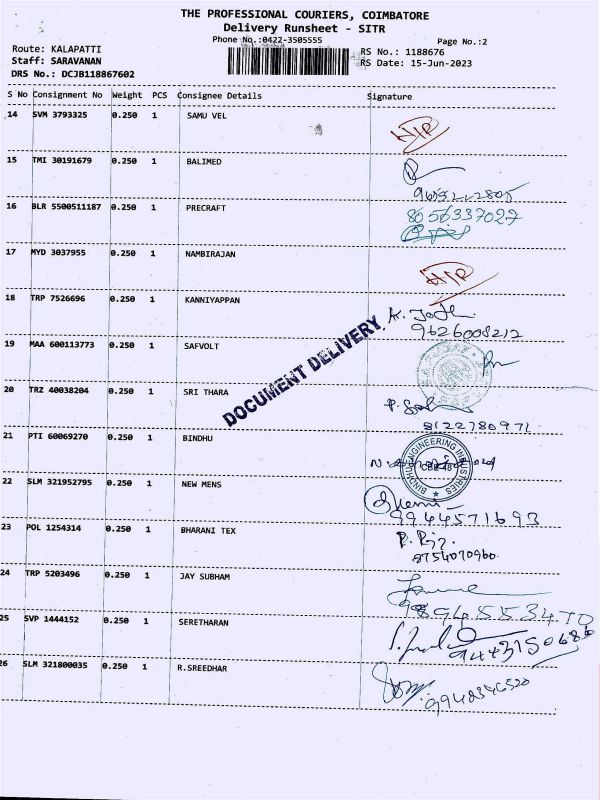 THE PROFESSIONAL COURIERS, COIMBATORE
Delivery Runsheet - SITR
Phone No.:0422-3505555
Page No.:2
Route: KALAPATTI
RS No.: 1188676
Staff: SARAVANAN
RS Date: 15-Jun-2023
DRS No.: DCJB118867602
S No Consignment No Weight PCS Consignee Details Signature
14 SVM 3793325 0.250 1 SAMU VEL
15 TMI 30191679 0.250 1 BALIMED
16 BLR 5500511187 0.250 1 PRECRAFT
8056337027
17 MYD 3037955 0.250 1 NAMBIRAJAN
18 TRP 7526696 0.250 1 KANNIYAPPAN
9626008212
19 MAA 600113773 0.250 1 SAFVOLT
DOCUMENT DELIVERY
20 TRZ 40038204 0.250 1 SRI THARA
8122780971
21 PTI 60069270 0.250 1 BINDHU
BINDHU ENGINEERING INDUSTRIES
22 SLM 321952795 0.250 1 NEW MENS
9944571693
23 POL 1254314 0.250 1 BHARANI TEX
9754070960
24 TRP 5203496 0.250 1 JAY SUBHAM
25 SVP 1444152 0.250 1 SERETHARAN
9443150686
26 SLM 321800035 0.250 1 R.SREEDHAR
9948346520